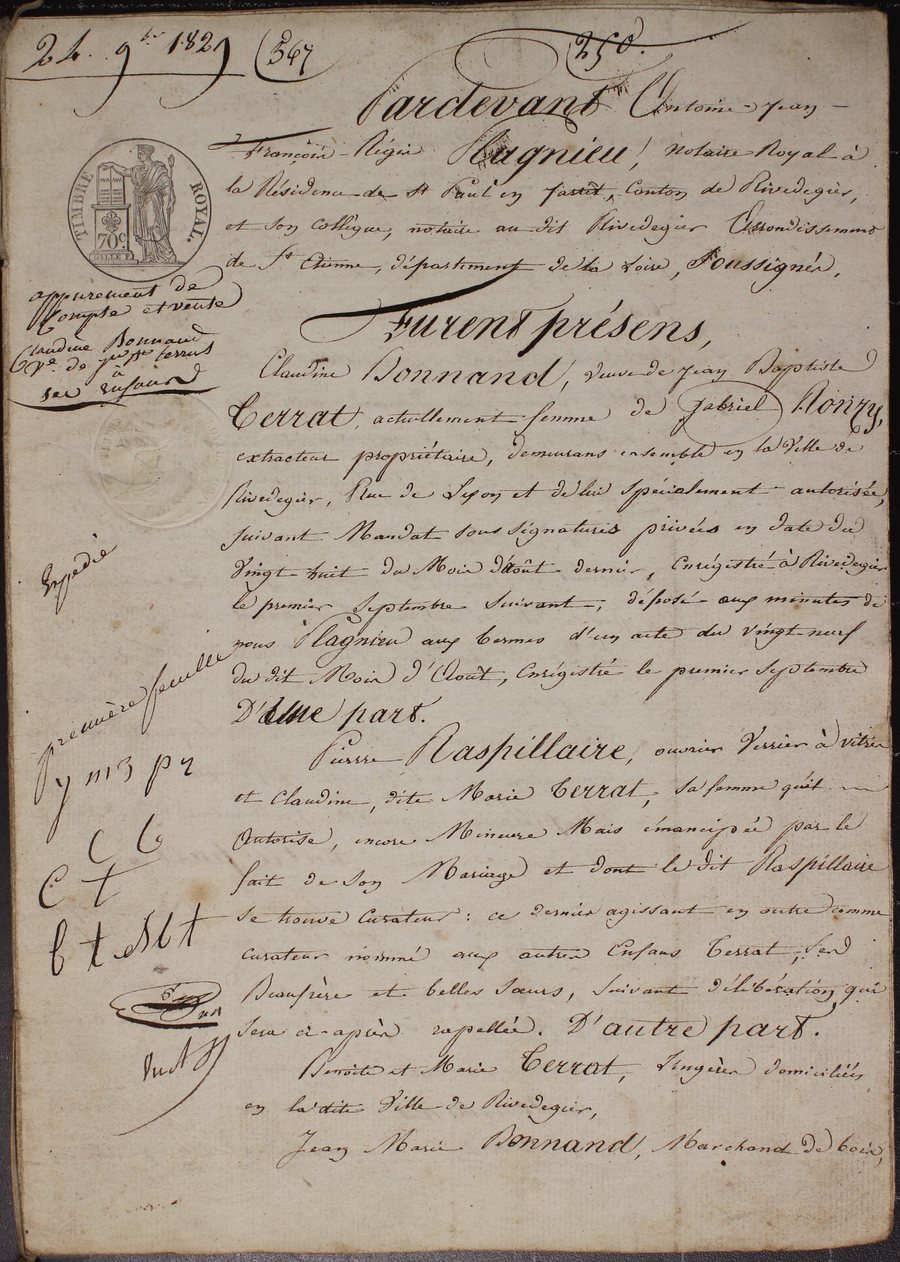 24. 9bre 1829 367 250.
Pardevant Antoine-Jean-
François-Régis Plagnieu, notaire Royal à
la Résidence de St Paul en Jarret, Canton de Rivedegier,
et son Collègue, notaire au dit Rivedegier Arrondissement
de St Etienne, département de la Loire, Soussignés,
TIMBRE ROYAL.
70c.
appurement de
Compte et vente
Claudine Bonnand
Ve. de
à
ses enfans
Furent présens,
Claudine Bonnand, veuve de Jean Baptiste
Terrat, actuellement femme de Gabriel Ronzy,
extracteur propriétaire, demeurans ensemble en la Ville de
Rivedegier, Rue de Lyon et de lui spécialement autorisée,
suivant Mandat sous signatures privées en date du
Vingt huit du Mois d'août dernier, Enrégistré à Rivedegier
le premier Septembre suivant, déposé aux minutes de
nous Plagnieu aux termes d'un acte du vingt-neuf
du dit Mois d'Août, Enrégistré le premier Septembre
D'Une part.
Expedié
première feuille
Pierre Raspillaire, ouvrier Verrier à vitres
et Claudine, dite Marie Terrat, sa femme qu'il
Autorise, encore Mineure Mais émancipée par le
fait de son Mariage et dont le dit Raspillaire
se trouve Curateur: ce dernier agissant en outre comme
curateur nommé aux autres Enfans Terrat, ses
Beaufrère et belles Sœurs, suivant délibération qui
sera ci-après rappellée. D'autre part.
Benoite et Marie Terrat, Lingères domiciliées
en la dite Ville de Rivedegier,
Jean Marie Bonnand, Marchand de bois,